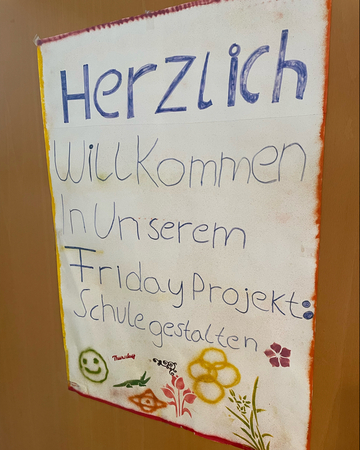 Herzlich
Willkommen
In Unserem
Friday Projekt:
Schule gestalten